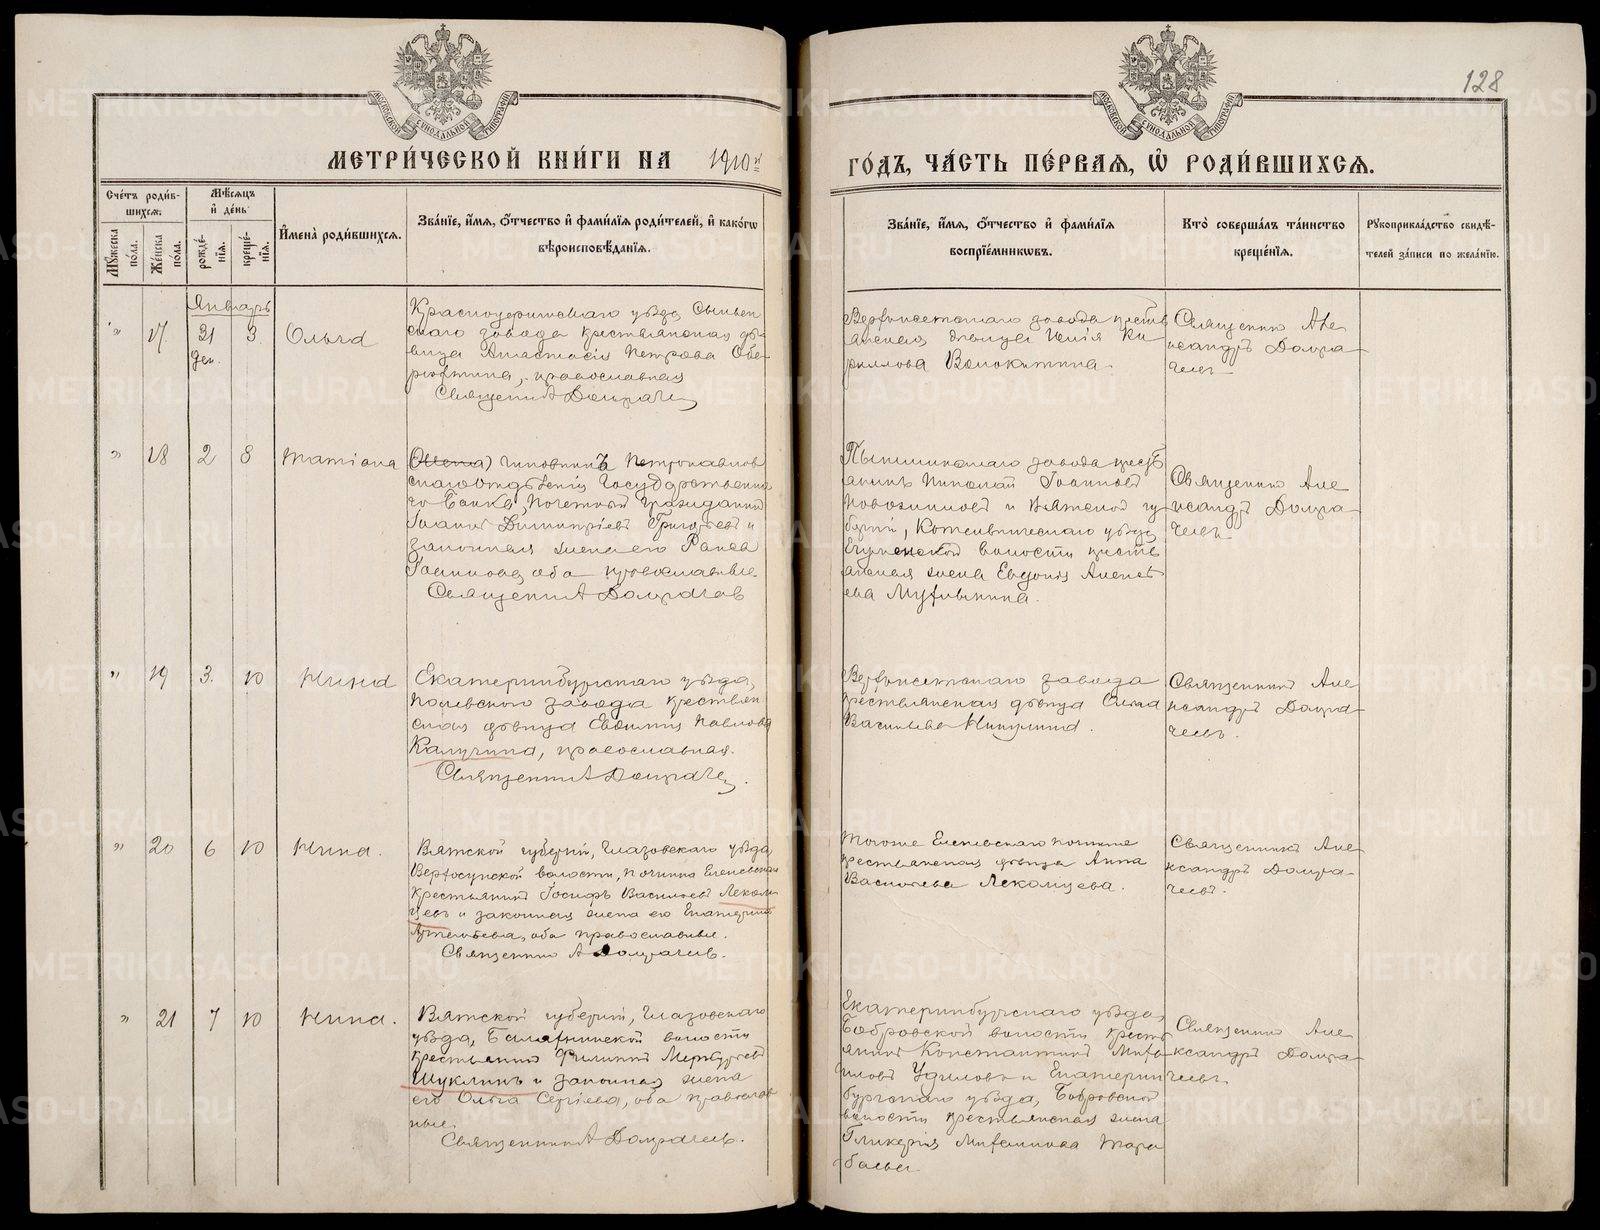 128
МЕТРИ́ЧЕСКОЙ КНИ́ГИ НА 1910й ГО́ДЪ, ЧА́СТЬ ПЕ́РВАЯ, Ѡ҆ РОДИ́ВШИХСЯ.
Сче́тъ роди́в-
шихсѧ.
Мѣ́сѧцъ
и҆ де́нь
Мꙋ́жеска по́ла.
Же́нска по́ла.
рожде́-нїѧ.
креще́-нїѧ.
И҆мена̀ роди́вшихсѧ.
Зва́нїе, и҆́мѧ, ѻ҆́тчество и҆ фами́лїѧ роди́телей, и҆ како́гѡ
вѣроисповѣ́данїѧ.
Зва́нїе, и҆́мѧ, ѻ҆́тчество и҆ фами́лїѧ
воспрїе́мникѡвъ.
Кто̀ соверша́лъ та́инство
креще́нїѧ.
Рꙋкоприкла́дство свидѣ́-
телей за́писи по жела́нїю.
Январь
" 17 31 3. Ольга
Дек.
Красноуфимскаго уѣзда
скаго завода крестьянская дѣ-
вица Анастасія Петрова
православная
Священник А Домрачев
Верхисетскаго завода крестья
анская дѣвица Ки
риллова Волокитина.
Священник Але
ксандръ Домра-
чевъ
" 18 2 8 Татіана
чиновникъ Петропавлов
скаго отдѣленія Государственна
го Банка, почетный гражданинъ
Іоаннъ Димитріевъ Григорьевъ и
законная жена его Раиса
Іоаннова, оба православные.
Священник А Домрачев
Пышминскаго завода крестья
анинъ Николай Іоанновъ
Новожиловъ и Вятской гу
берніи, Котельническаго уѣзда
волости кресть
анская жена Евдокія Алексѣ
ева
Священник Але
ксандръ Домра-
чевъ
" 19 3. 10 Нина
Екатеринбургскаго уѣзда,
Полевского завода крестьян
ская дѣвица Евдокія Павлова
Калугина, православная.
Священник А Домрачев.
Верхисетскаго завода
крестьянская дѣвица
Васильева Никулина.
Священникъ Але
ксандръ Домра-
чевъ.
" 20 6 10 Нина.
Вятской губерніи, Глазовскаго уѣзда
Верхосунской волости, починка
крестьянинъ Іосифъ Васильевъ Леком
цевъ и законная жена его Екатерина
Артемьева, оба православные.
Священник А Домрачев.
Того же починка
крестьянская дѣвица Анна
Васильева Лекомцева.
Священникъ Але
ксандръ Домра-
чевъ.
" 21 7 10 Нина.
Вятской губерніи, Глазовскаго
уѣзда, волости
крестьянинъ Филиппъ Меркурьевъ
Шуклинъ и законная жена
его Ольга Сергіева, оба православ
ные.
Священник А Домрачев.
Екатеринбургскаго уѣзда,
Бобровской волости кресть
янинъ Константинъ Миха
иловъ и Екатерин
бургскаго уѣзда, Бобровской
волости крестьянская жена
Гликерія Михаилова
Священник Але
ксандръ Домра-
чевъ